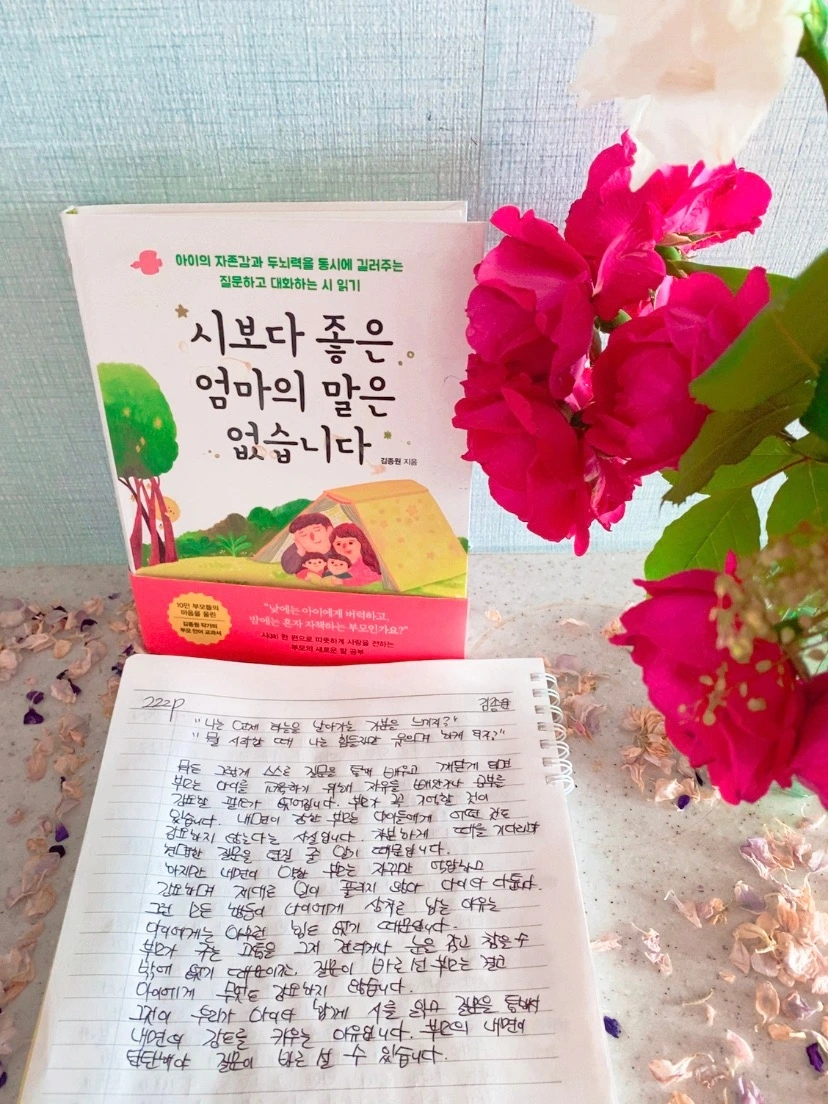 아이의 자존감과 두뇌력을 동시에 길러주는
질문하고 대화하는 시 읽기
시보다 좋은
엄마의 말은
없습니다
김종원 지음
10만 부모들의
마음을 울린
김종원 작가의
부모 인문 교과서
"낮에는 아이에게 버럭하고,
밤에는 혼자 자책하는 부모인가요?"
시(詩) 한 편으로 따뜻하게 사랑을 전하는
부모의 새로운 말 공부
222p 김종원
"나는 언제 하늘을 날아가는 기분을 느끼지?"
"뭘 시작할 때 나는 힘들지만 웃으며 하게 되지?"
그렇게 스스로 질문을 통해 배우고 깨닫게 되면
부모는 아이를 교육하기 위해 자유를 빼앗거나 공부를
강요할 필요가 없어집니다. 부모가 꼭 기억할 것이
있습니다. 내면이 강한 부모는 아이들에게 어떤 것도
강요하지 않는다는 사실입니다. 차분하게 때를 기다리며
현명한 질문을 던질 줄 알기 때문입니다.
하지만 내면이 약한 부모는 자꾸만 억압하고
강요하며 제대로 일이 풀리지 않아 아이와 다툽니다.
그런 모든 행동이 아이에게 상처로 남는 이유는
아이에게는 아무런 힘도 없기 때문입니다.
부모가 주는 고통을 그저 견디거나 눈을 감고 참을 수
밖에 없기 때문이죠. 질문이 바로 선 부모는 결코
아이에게 무엇도 강요하지 않습니다.
그것이 우리가 아이와 함께 시를 읽고 질문을 통해서
내면의 강도를 키우는 이유입니다. 부모의 내면이
탄탄해야 질문이 바로 설 수 있습니다.